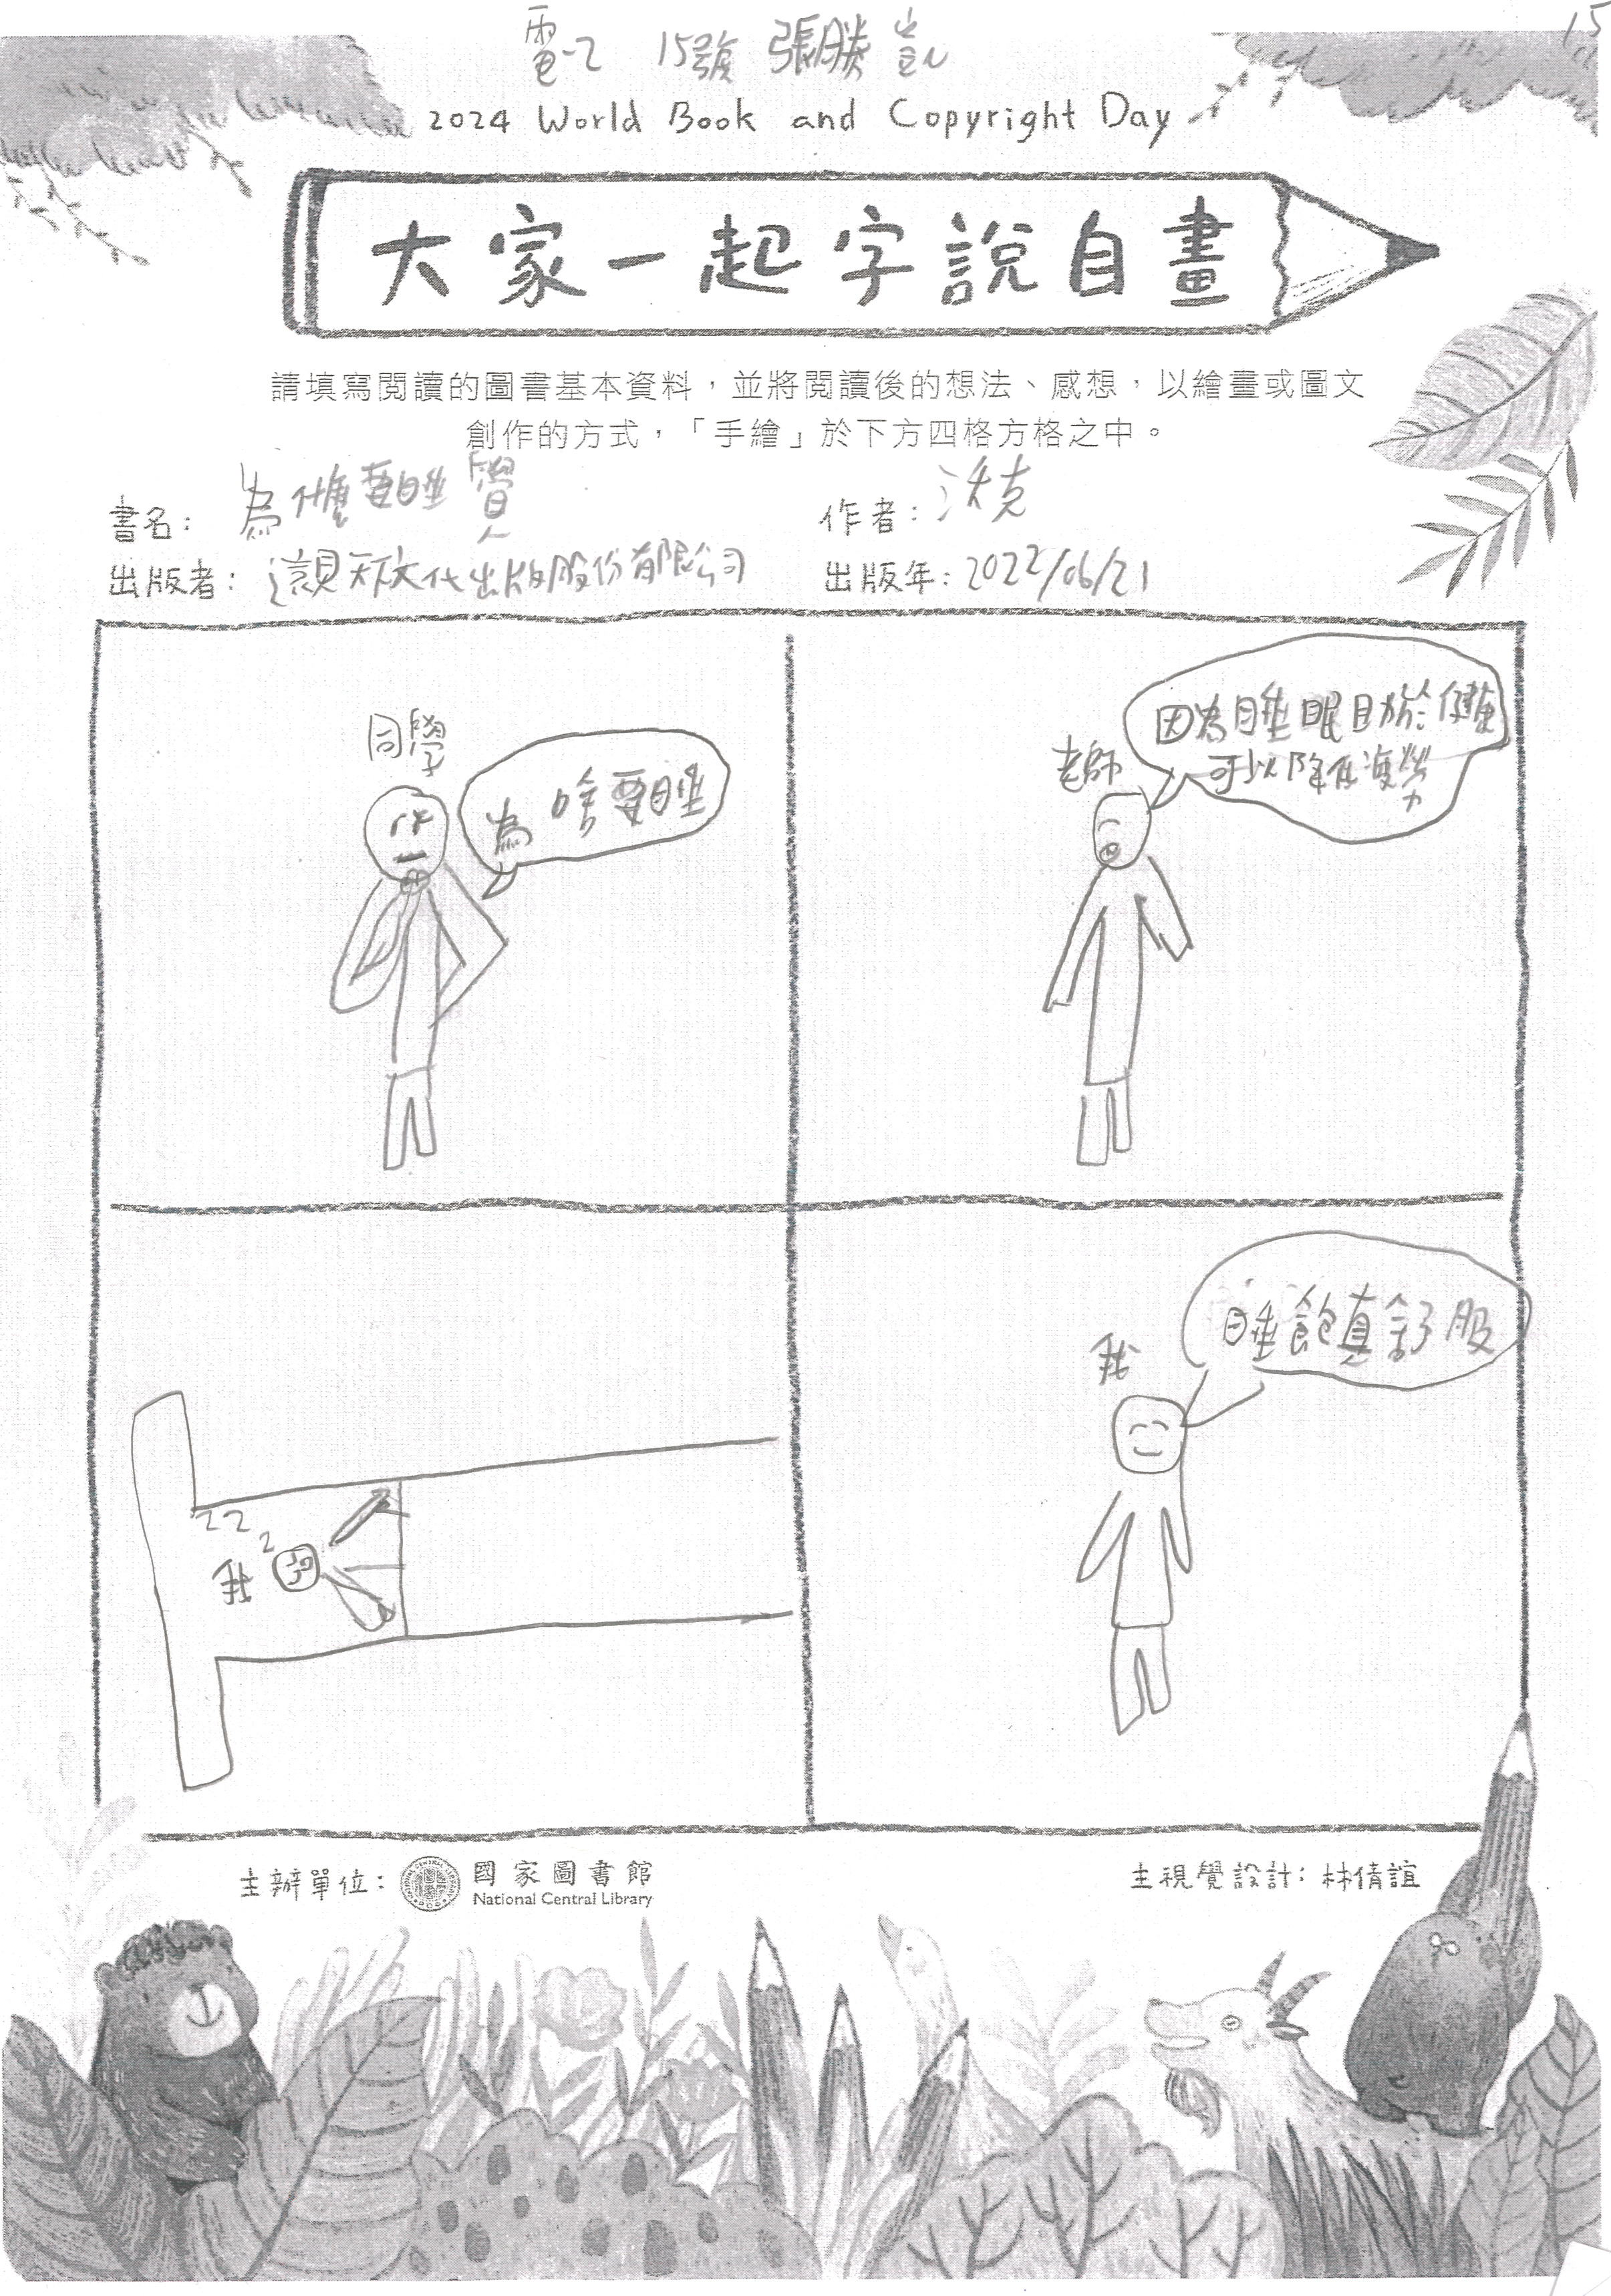 15
電一乙 15號 張勝凱
2024 World Book and Copyright Day
大家一起字說自畫
請填寫閱讀的圖書基本資料，並將閱讀後的想法、感想，以繪畫或圖文
創作的方式，「手繪」於下方四格方格之中。
書名：為什麼要睡覺
作者：沃克
出版者：遠見天下文化出版股份有限公司
出版年：2022/06/21
同學
為啥要睡
老師
因為睡眠助於健康
可以降低疲勞
zz
z
我
我
睡飽真舒服
主辦單位：國家圖書館
National Central Library
主視覺設計：林倩誼